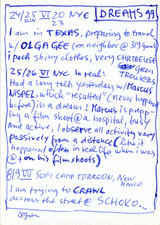 24/25 VI 20 NYC DREAMS 99
SUN 23
I am in TEXAS, preparing to travel
w/ OLGA GEE (ex neighbor @ 319 good)
I pack shiny clothes, very CHARTREUSE
green TROUSERS
25/26 VI NYC In real:
Had a long talk yesterday w/ MARCUS
NISPEL, which "resulted" (never happened
before) in a dream! MARCUS is prepp-
ing a film shoot @ a hospital, busy
and active, I observe all activity very
passively from a distance (like it
happened often in real life when I was
@ on his film shoots)
8/9 VII SOFI CAMP TORREON, New
Mexico
I am trying to CRAWL
across the street @ SCHOKO...